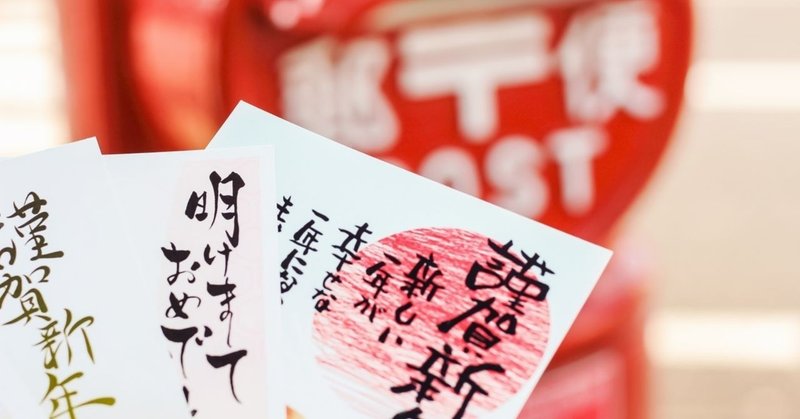 郵〒便
POST
謹賀新年
明けまして
おめで
謹賀新
新しい
一年が
幸せな
一年に